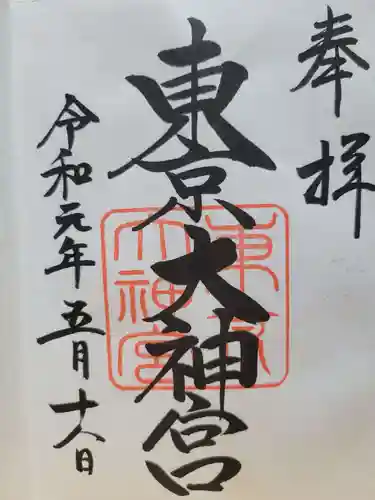 奉拝
東京大神宮
東京大神宮
令和元年五月十八日